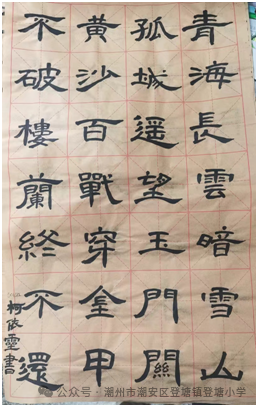 青海長雲暗雪山
孤城遥望玉門關
黄沙百戰穿金甲
不破樓蘭終不還
柯依靈書
公众号·潮州市潮安区登塘镇登塘小学